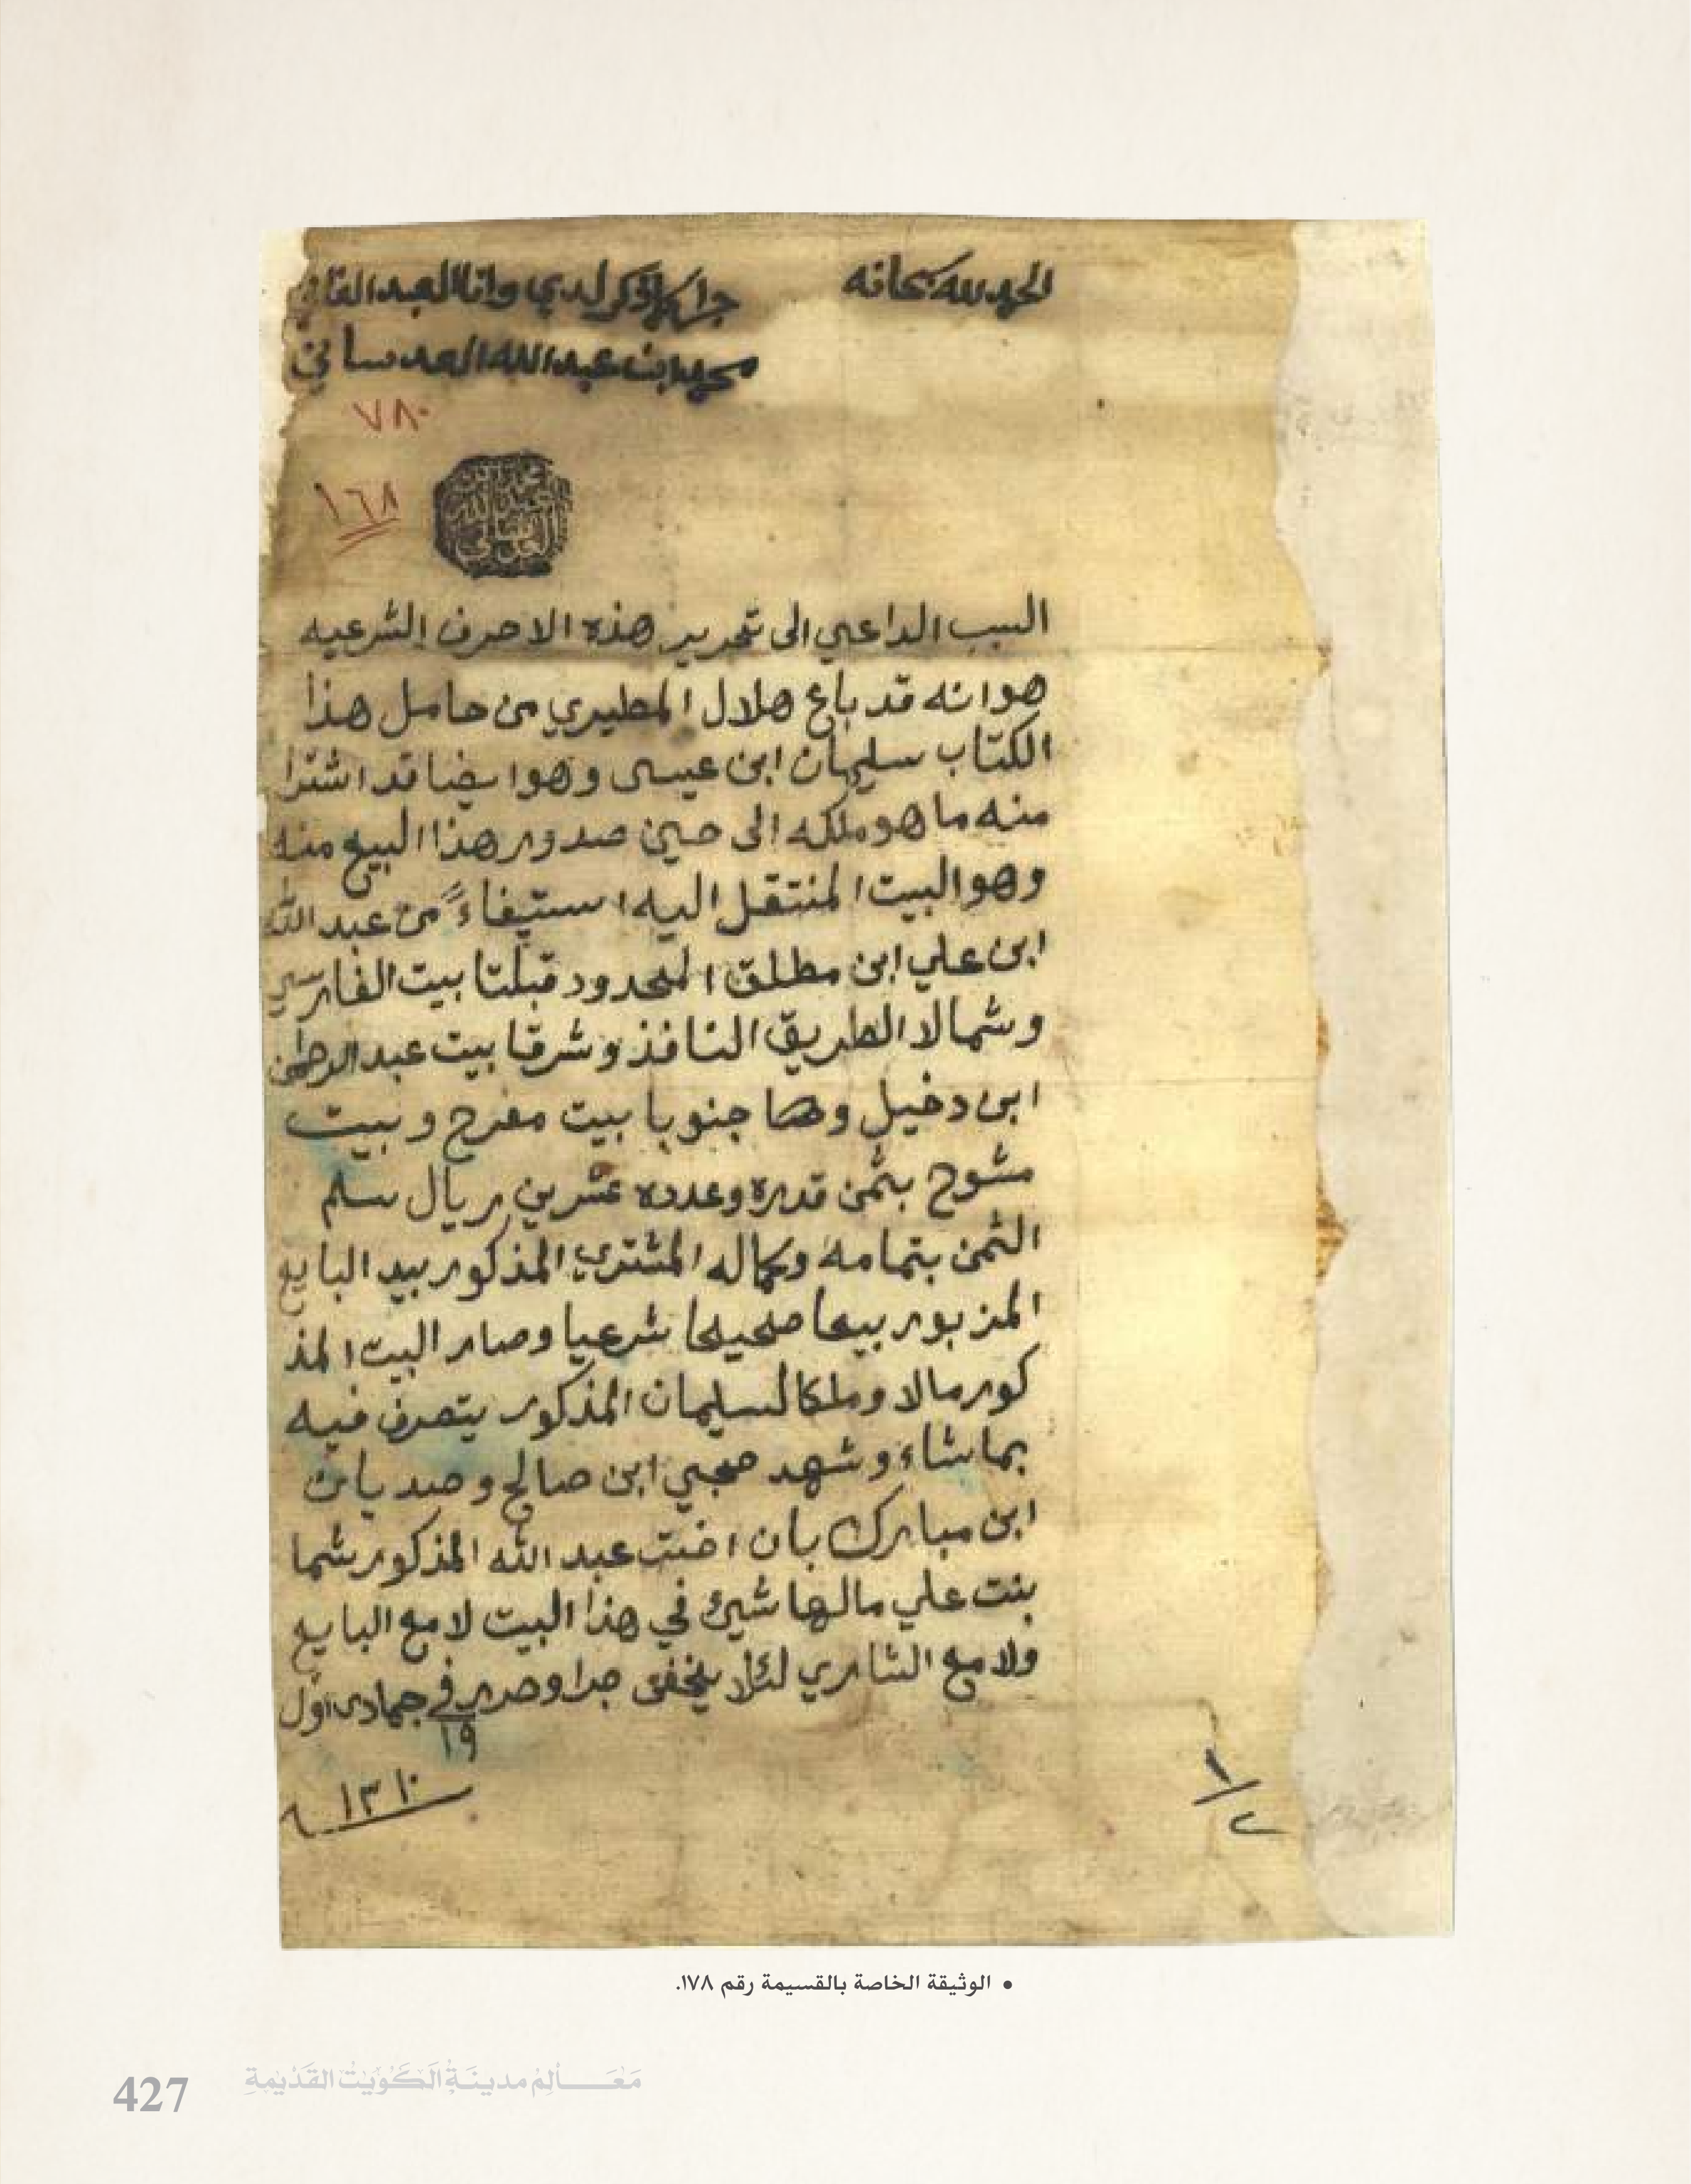 الحمد لله سبحانه
جرا كما ذكر لدي وانا العبد الفاني
محمد ابن عبد الله العدساني
٧٨٠
١٦٨
السبب الداعي الى تحرير هذه الاحرف الشرعيه
هو انه قد باع هلال المطيري من حامل هذا
الكتاب سليمان ابن عيسى وهو ايضا قد اشترا
منه ما هو ملكه الى حين صدور هذا البيع منه
وهو البيت المنتقل اليه استيفاءً من عبد الله
ابن علي ابن مطلق المحدود قبلتا بيت الفارسي
وشمالا الطريق النافذ وشرقا بيت عبد الرحمن
ابن دخيل وحدا جنوبا بيت مفرح وبيت
مشوح بثمن قدره وعدده عشرين ريال سلم
الثمن بتمامه وكماله المشتري المذكور بيد البايع
المزبور بيعا صحيحا شرعيا وصار البيت المذ
كور مالا وملكا لسليمان المذكور يتصرف فيه
بما شاء وشهد صالح و
ابن مبارك بان اخت عبد الله المذكور شما
بنت علي مالها شيئ في هذا البيت لا مع البايع
ولا مع الشاري لئلا يخفى جرا وحرر في جمادى اول
١٩
١٣١٠
١/٢
• الوثيقة الخاصة بالقسيمة رقم ١٧٨.
427 مَعَالِم مدينَة الكُوَيت القَدْيمةِ